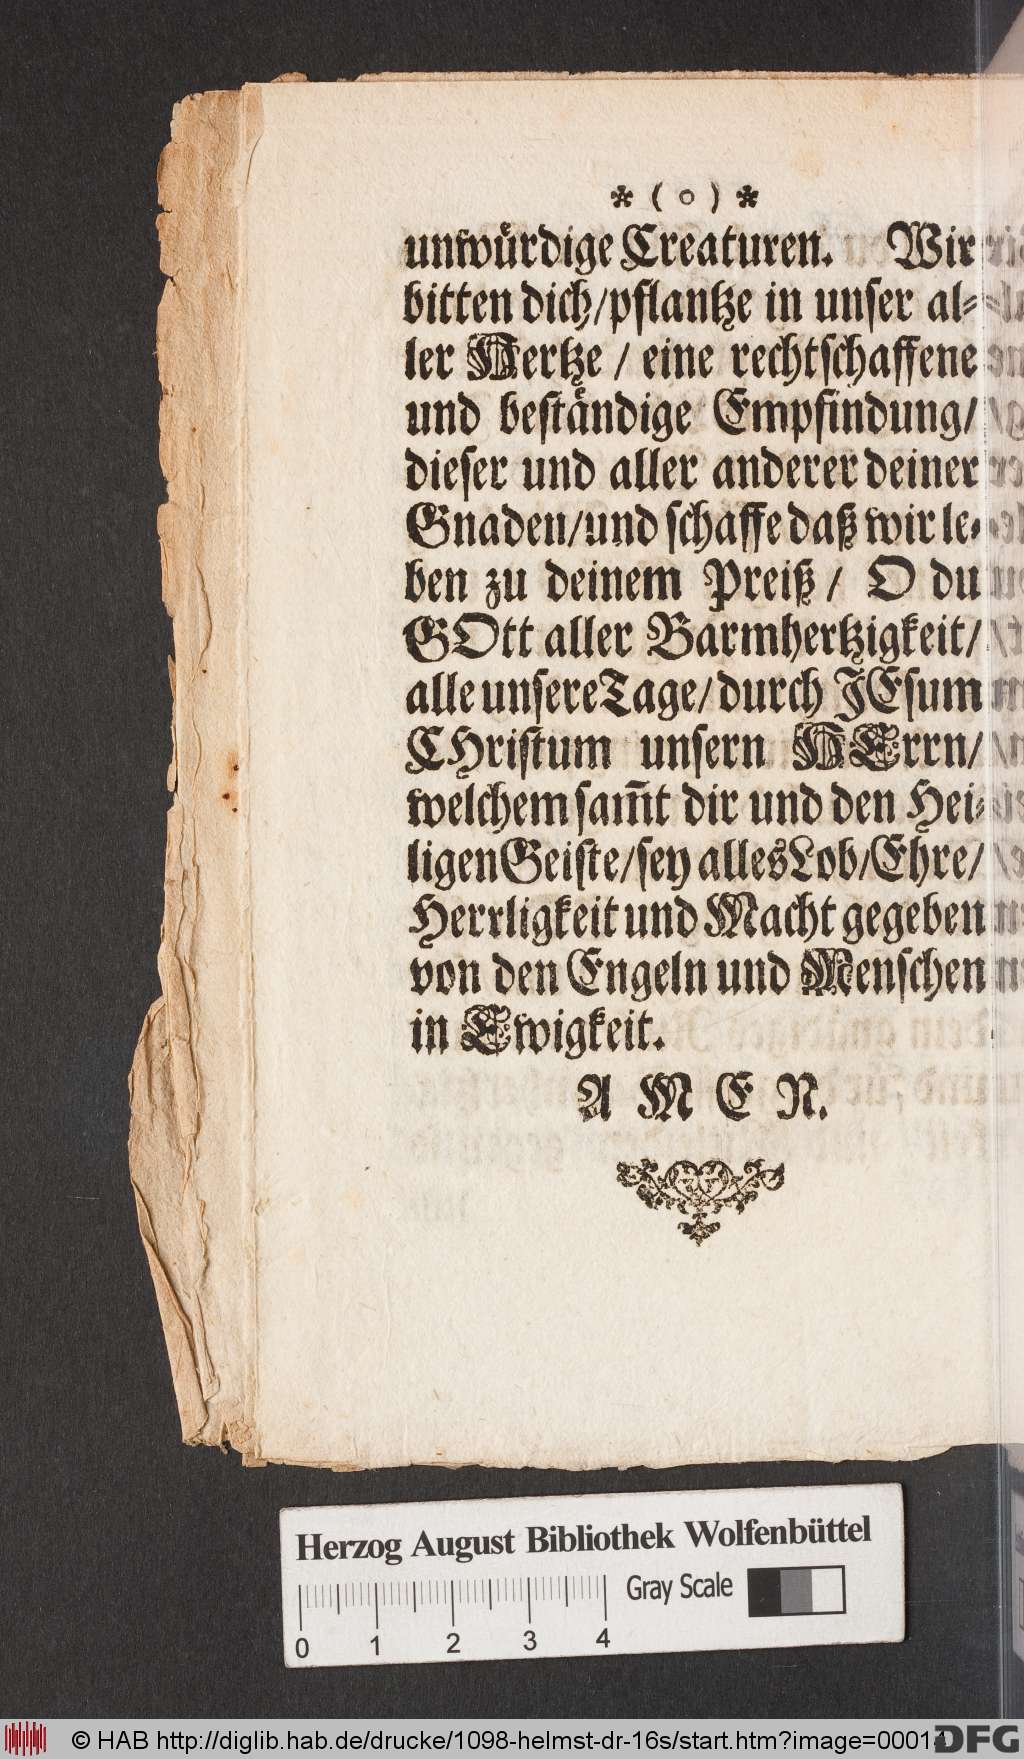 * ( o ) *
unwuͤrdige Creaturen. Wir
bitten dich/pflantze in unser al⸗
ler Hertze / eine rechtschaffene
und bestaͤndige Empfindung/
dieser und aller anderer deiner
Gnaden/und schaffe daß wir le⸗
ben zu deinem Preiß / O du
GOtt aller Barmhertzigkeit/
alle unsere Tage/durch JEsum
CHristum unsern HErrn/
welchem sam̃t dir und den Hei⸗
ligen Geiste/sey alles Lob/Ehre/
Herrligkeit und Macht gegeben
von den Engeln und Menschen
in Ewigkeit.
A M E N.
Herzog August Bibliothek Wolfenbüttel
Gray Scale
0 1 2 3 4
© HAB http://diglib.hab.de/drucke/1098-helmst-dr-16s/start.htm?image=00014
DFG